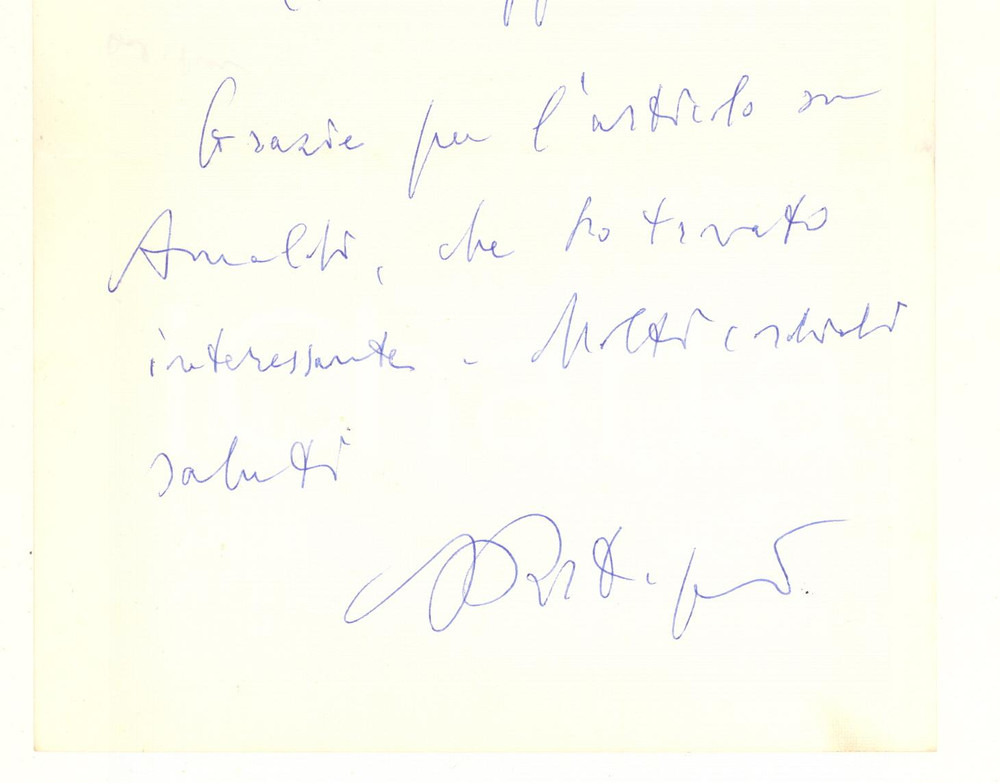 Grazie per l'articolo su
Arnaldi, che ho trovato
interessante. Molti cordiali
saluti